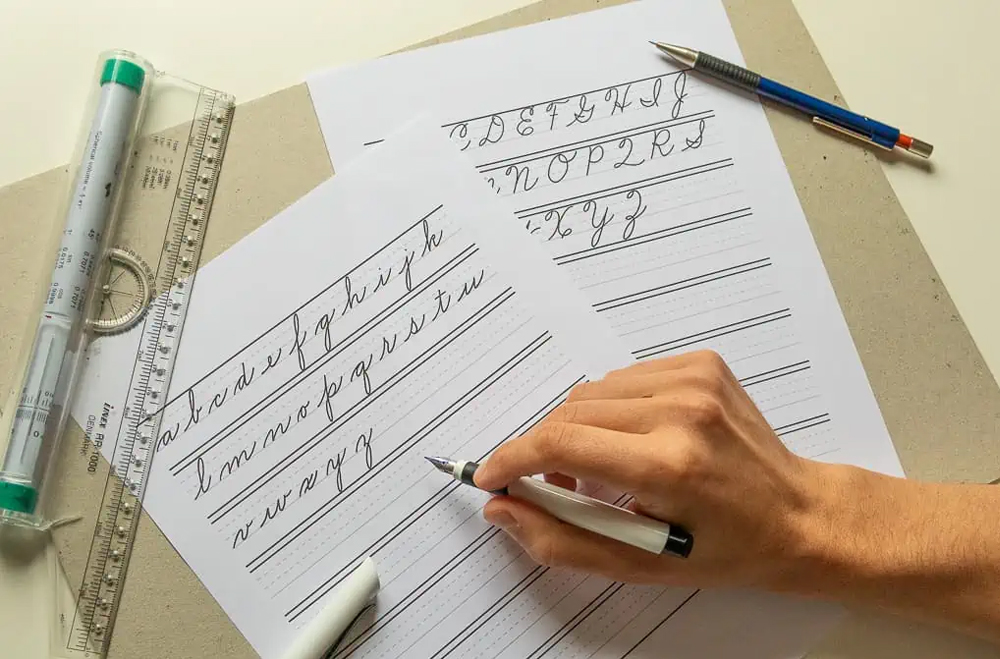 D E F G H I J
N O P Q R S
X Y Z
a b c d e f g h i j k
l m n o p q r s t u
v w x y z
LINEX RR-1000
DENMARK